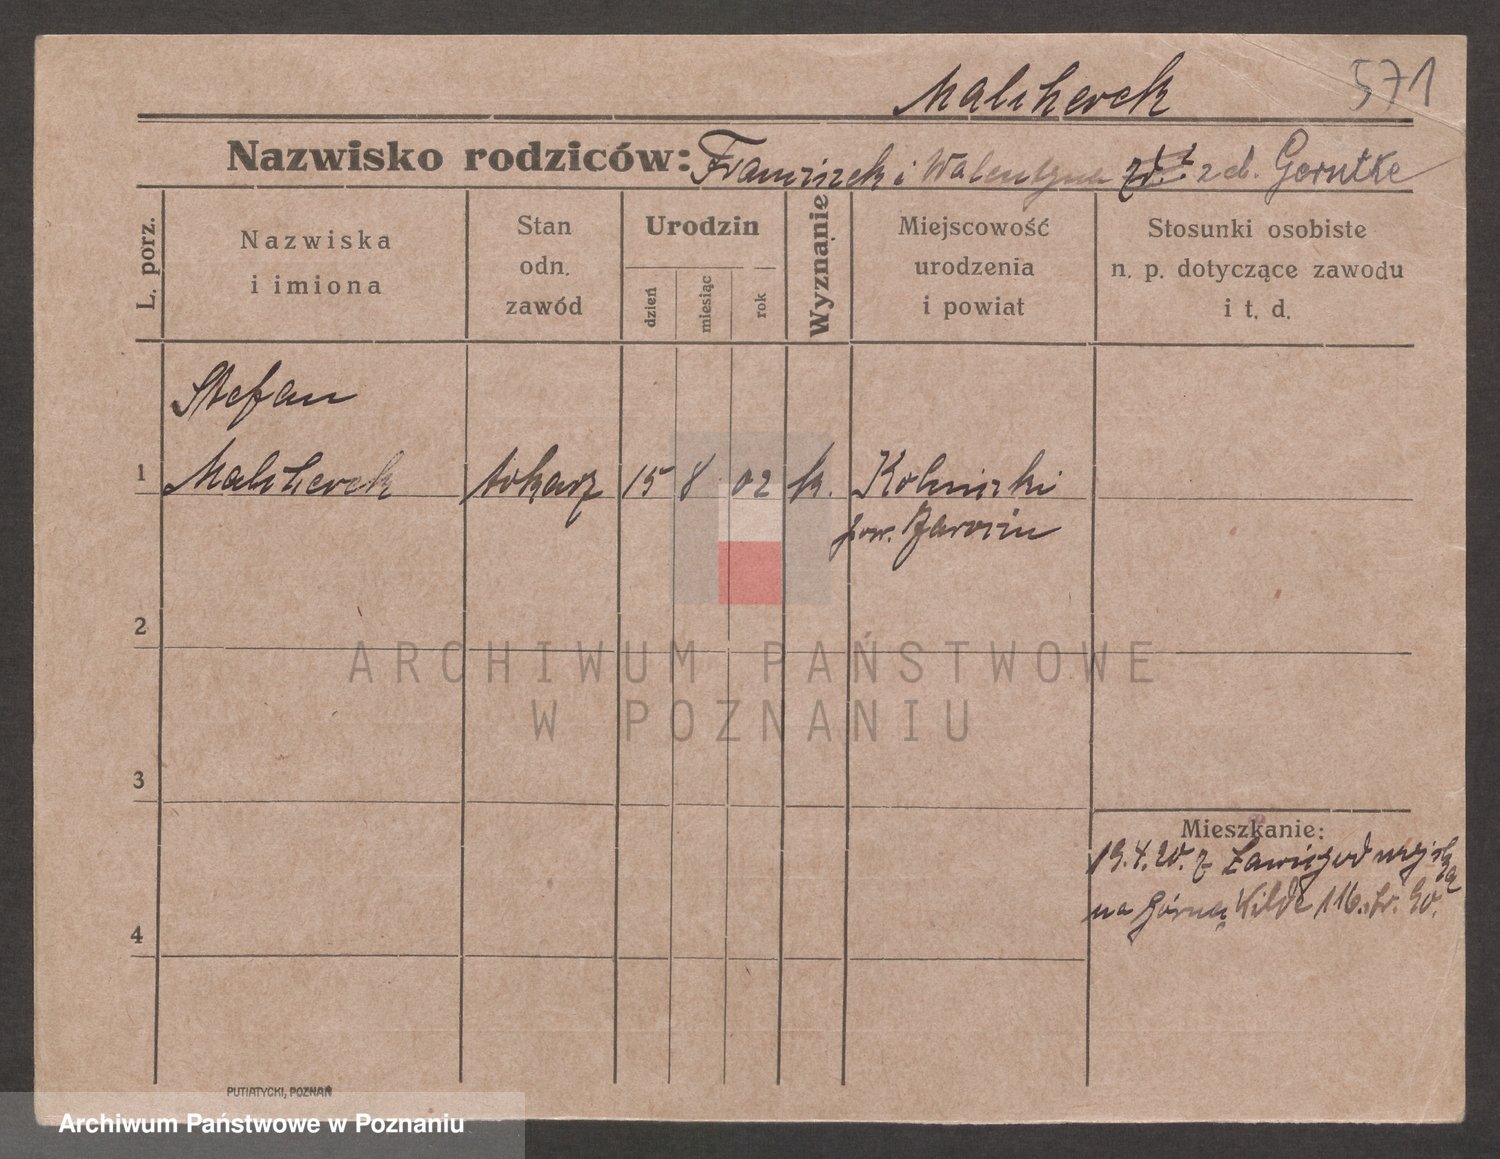 Malcherek 571
Nazwisko rodziców: Franciszek i Walentyna z d. Gerntke
L. porz.
Nazwiska
i imiona
Stan
odn.
zawód
Urodzin
dzień
miesiąc
rok
Wyznanie
Miejscowość
urodzenia
i powiat
Stosunki osobiste
n. p. dotyczące zawodu
i t. d.
Stefan
1 Malcherek tokarz 15 8 02 k.
pow. Jarocin
2
3
4
Mieszkanie:
19.4.20. z
na Górną Wildę 116.
PUTIATYCKI, POZNAŃ
ARCHIWUM PAŃSTWOWE
W POZNANIU
Archiwum Państwowe w Poznaniu